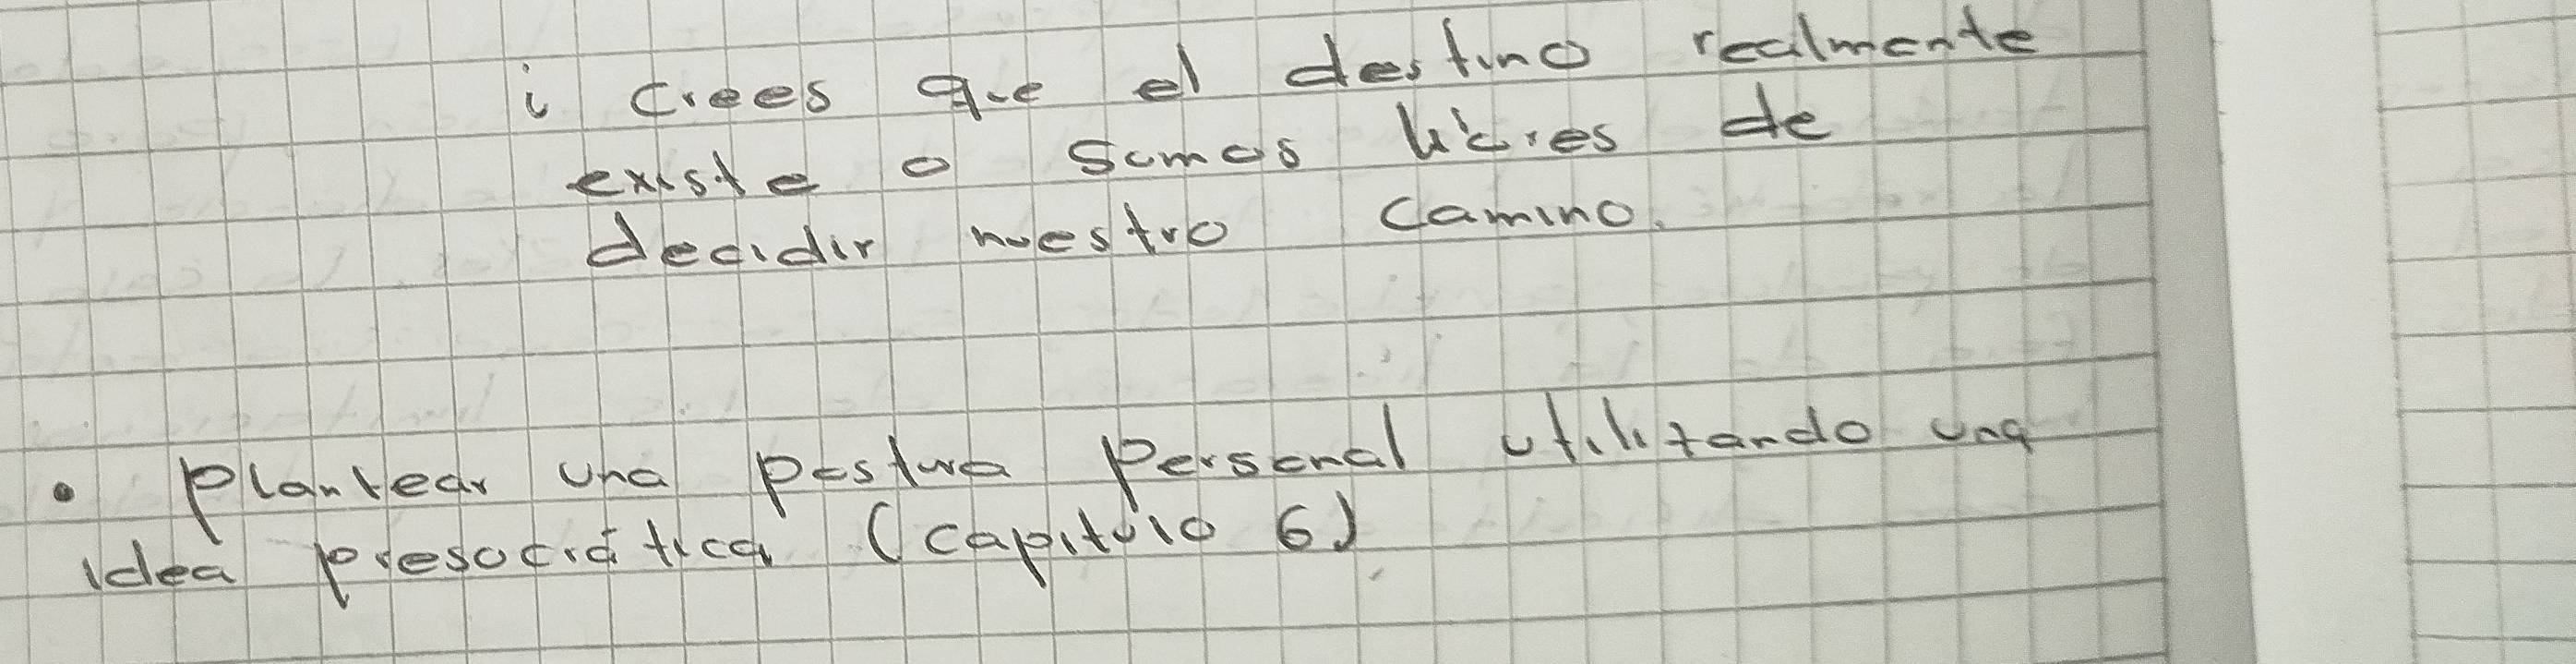 ¿ crees que el destino realmente
existe o somos libres de
decidir nuestro camino.
• plantear una postura personal utilizando una
idea presocrática (capitulo 6)